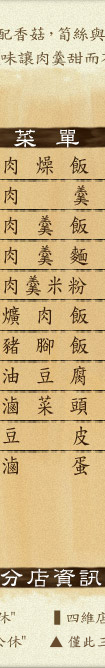 配香菇，筍絲與
味讓肉羹甜而不
菜單
肉燥飯
肉羹
肉羹飯
肉羹麵
肉羹米粉
爌肉飯
豬腳飯
油豆腐
滷菜頭
豆皮
滷蛋
分店資訊
休" ▌四維店
公休" ▲ 僅此三